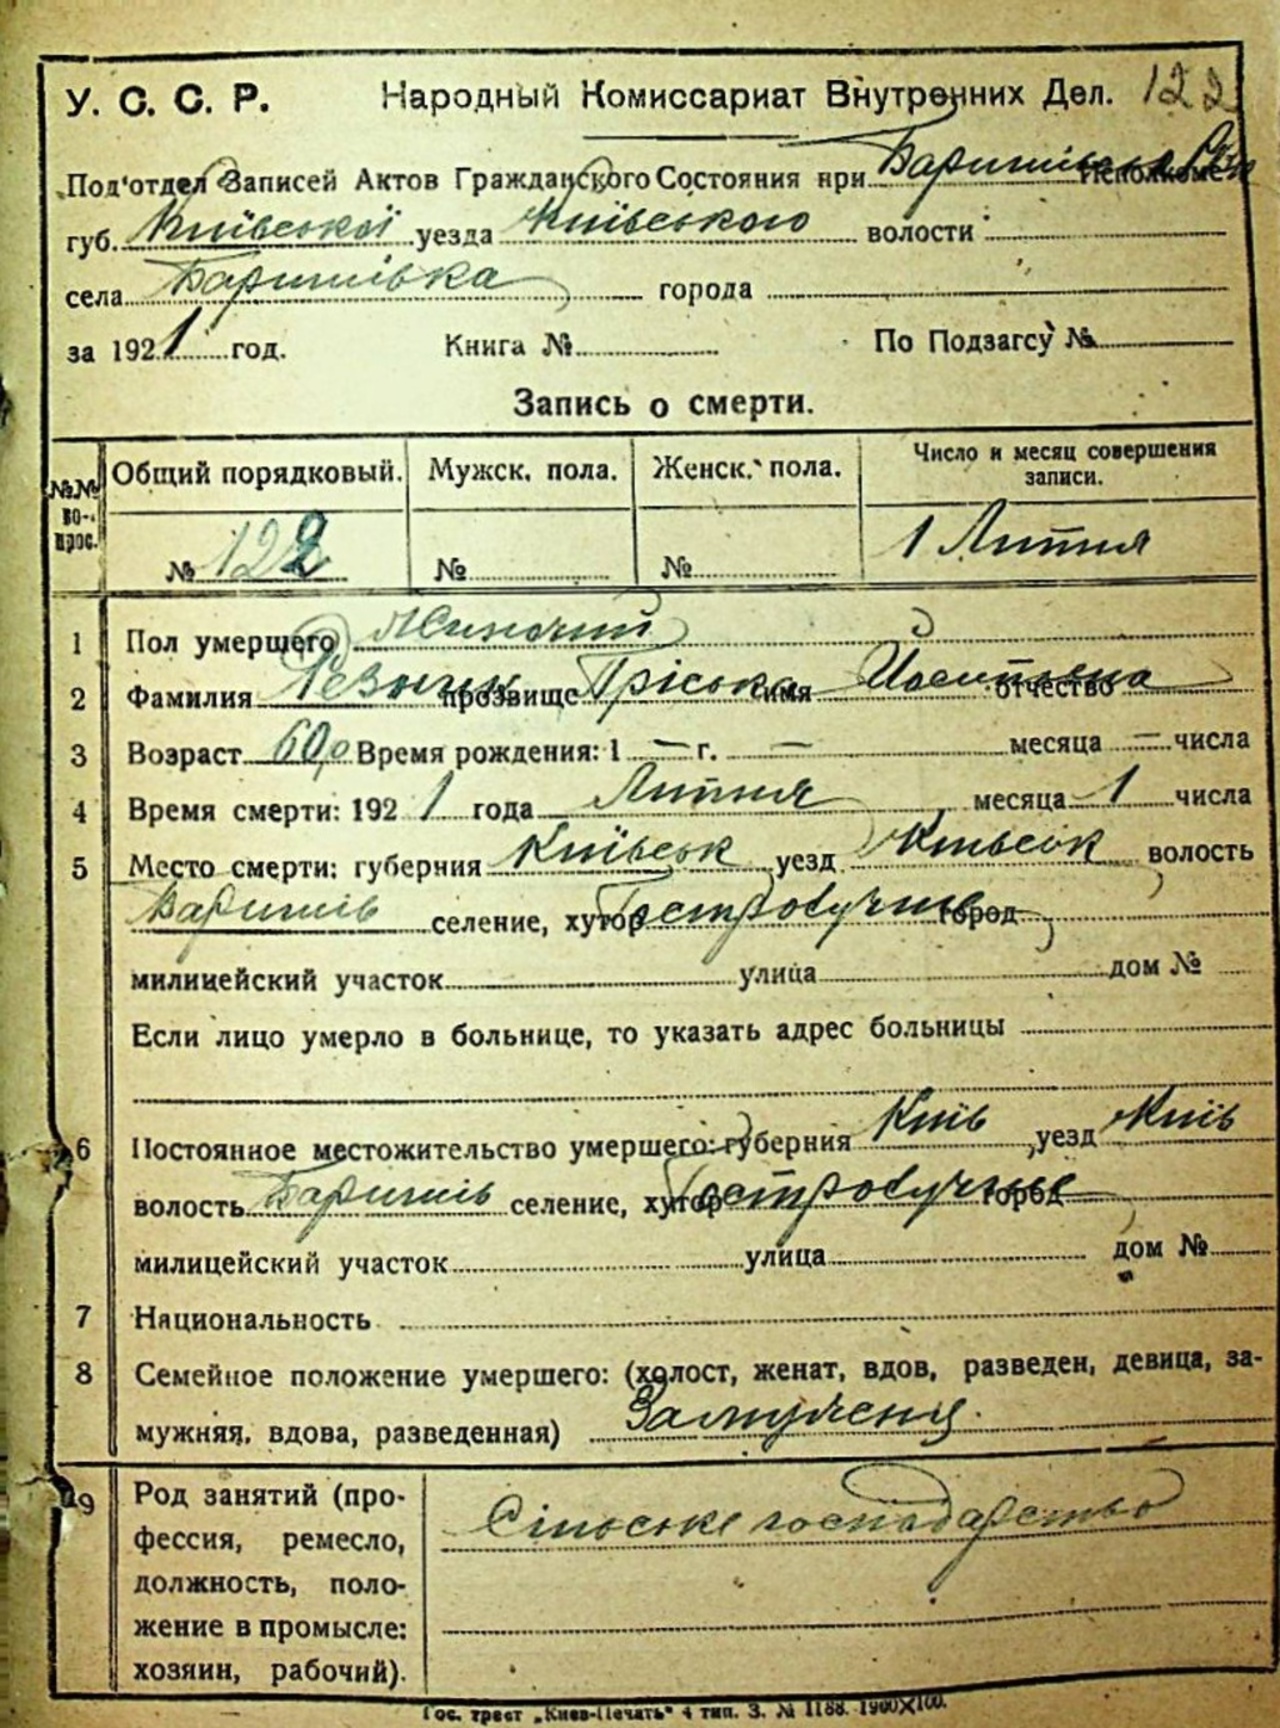 У. С. С. Р. Народный Комиссариат Внутренних Дел. 122
Под'отдел Записей Актов Гражданского Состояния при Исполкоме
губ. Київської уезда Київського волости
села Баришівка города
за 1921 год. Книга № По Подзагсу №
Запись о смерти.
№№ во-прос. Общий порядковый. Мужск. пола. Женск. пола. Число и месяц совершения записи.
№ 122 № № 1 Липня
1 Пол умершего Жиночий
2 Фамилия прозвище Пріська имя отчество
3 Возраст 60 Время рождения: 1 — г. — месяца — числа
4 Время смерти: 1921 года Липня месяца 1 числа
5 Место смерти: губерния Київськ уезд Київськ волость
Баришів селение, хутор город
милицейский участок улица дом №
Если лицо умерло в больнице, то указать адрес больницы
6 Постоянное местожительство умершего: губерния Київ уезд Київ
волость Баришів селение, хутор город
милицейский участок улица дом №
7 Национальность
8 Семейное положение умершего: (холост, женат, вдов, разведен, девица, за-
мужняя, вдова, разведенная) Замужня.
9 Род занятий (про-
фессия, ремесло,
должность, поло-
жение в промысле:
хозяин, рабочий).
Сільське господарство
Гос. трест „Киев-Печать" 4 тип. З. № 1188. 1900×100.